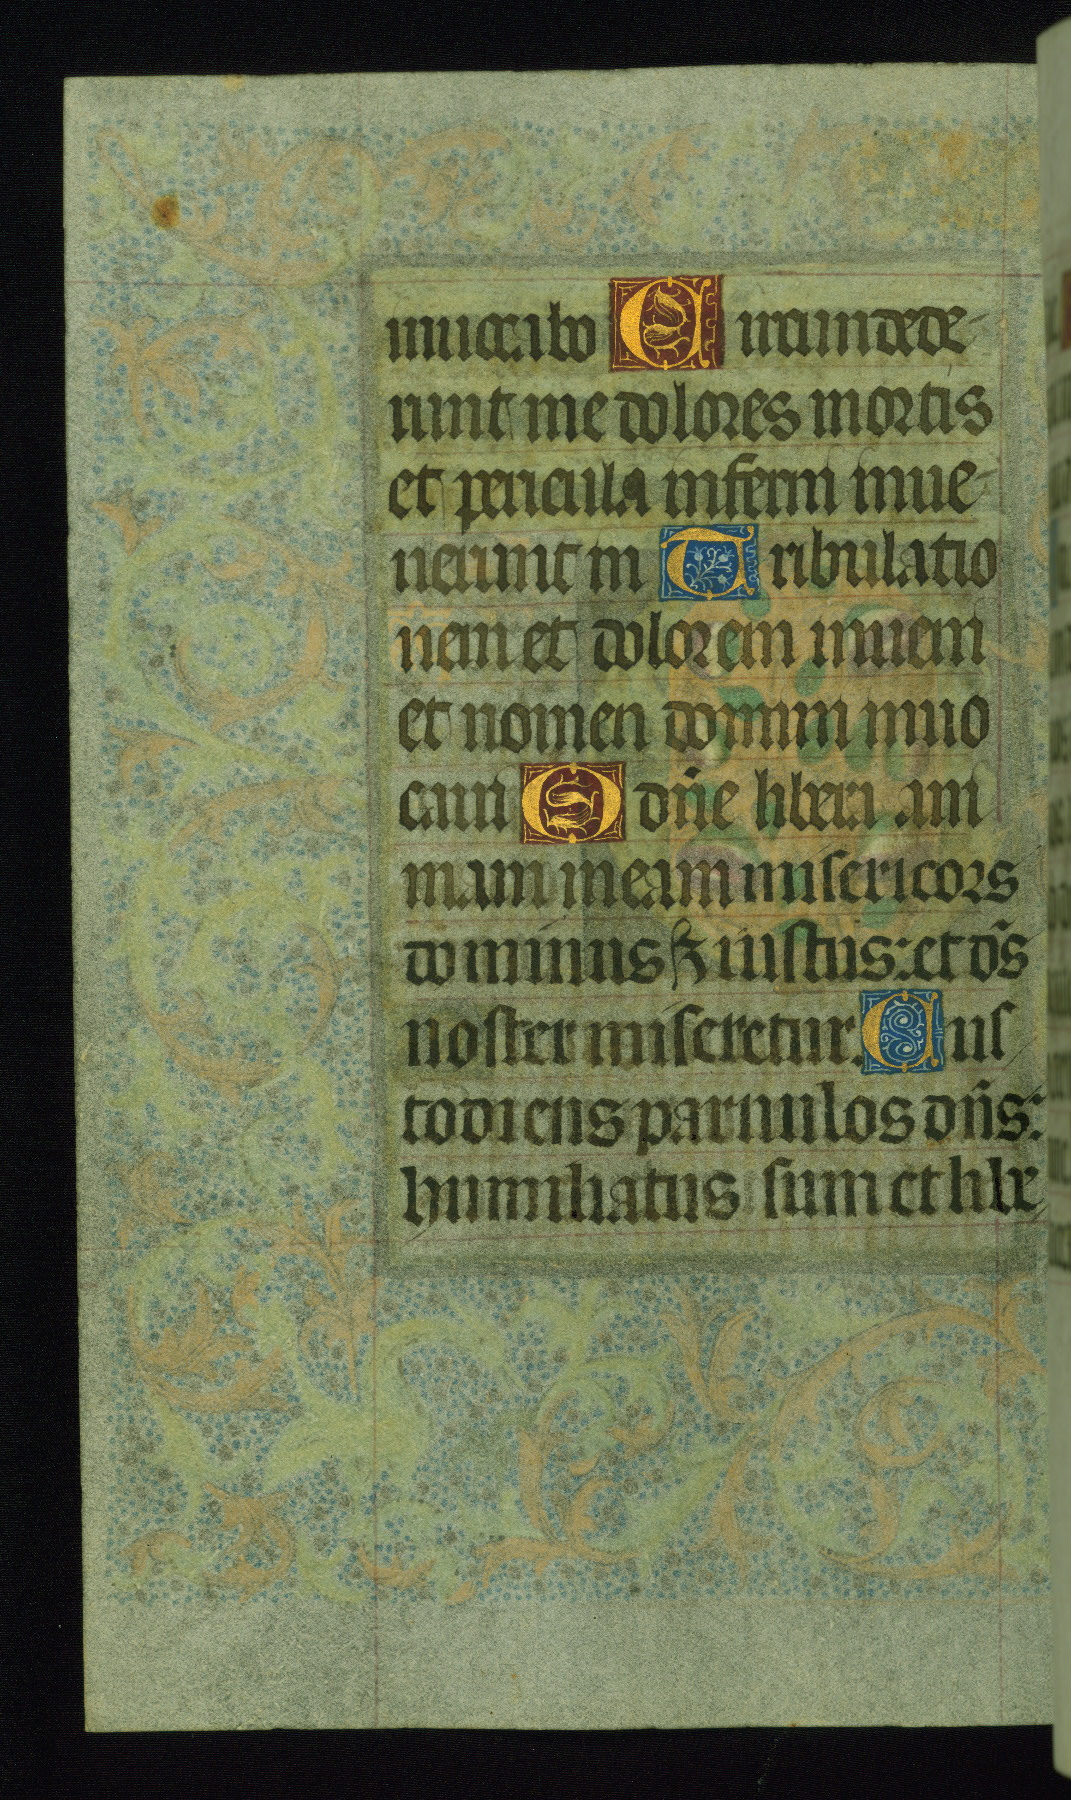 inuocabo Circumdede-
runt me dolores mortis
et pericula inferni inue-
nerunt m Tribulatio
nem et dolorem inueni
et nomen domini inuo
caui O dñe libera ani
mam meam misericors
dominus & iustus: et dñs
noster miseretur. Cus
todiens paruulos dñs:
humiliatus sum et libe